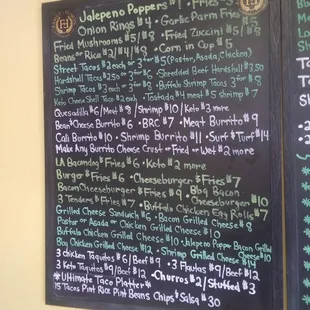 Jalepeno Poppers $1 • Fries $3
Onion Rings $4 • Garlic Parm Fries
Fried Mushrooms $5/$8 • Fried Zuccini $5/$8
Beans or Rice $2/$4/$8 • Corn in Cup $5
Street Tacos $2 each or 3 for $5 (Pastor, Asada, Chicken)
Hardshell Tacos $2.50 or 3 for $6 • Shredded Beef Hardshell $2.50
Shrimp Tacos $3 each or 3 for $8 • Buffalo Shrimp Tacos 3 for $8
Keto Cheese Shell Taco $2 each • Tostada $4 meat $5 shrimp $7
Quesadilla $6/Meat $8 / Shrimp $10 / Keto $3 more
Bean & Cheese Burrito $6 • BRC $7 • Meat Burrito $9
Cali Burrito $10 • Shrimp Burrito $11 • Surf & Turf $14
Make Any Burrito Cheese Crust • Fried or Wet $2 more
LA Bacondog & Fries $6 • Keto $2 more
Burger & Fries $6 • Cheeseburger & Fries $7
Bacon Cheeseburger & Fries $9 • Bbq Bacon
3 Tenders & Fries $7 • Cheeseburger $10
Buffalo Chicken Egg Rolls $7
Grilled Cheese Sandwich $6 • Bacon Grilled Cheese $8
Pastor or Asada or Chicken Grilled Cheese $10
Buffalo Chicken Grilled Cheese $10 • Jalepeno Popper Bacon Grilled
Bbq Chicken Grilled Cheese $12 • Shrimp Grilled Cheese $12
3 chicken Taquitos $6/Beef $9 • 3 Flautas $9/Beef $12
3 Keto Taquitos $9/Beef $12 • Churros $2/Stuffed $3
*Ultimate Taco Platter*
15 Tacos Pint Rice Pint Beans Chips & Salsa $30